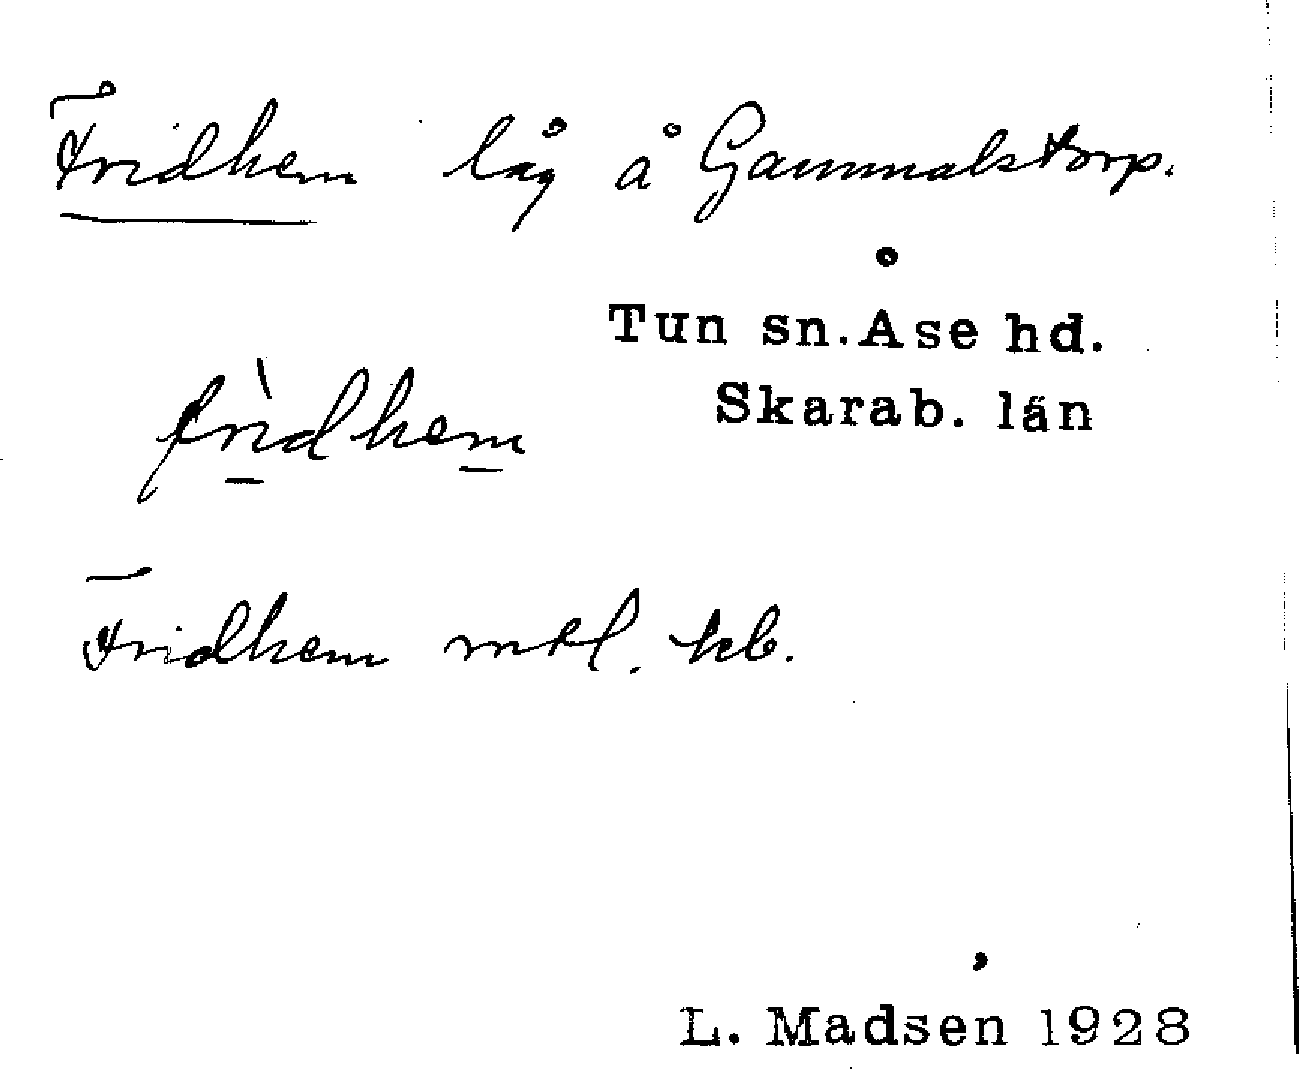 Fridhem låg å Gammalstorp.
Tun sn. Åse hd.
Skarab. län
frìdhem
Fridhem mtl. kb.
L. Madsen 1928